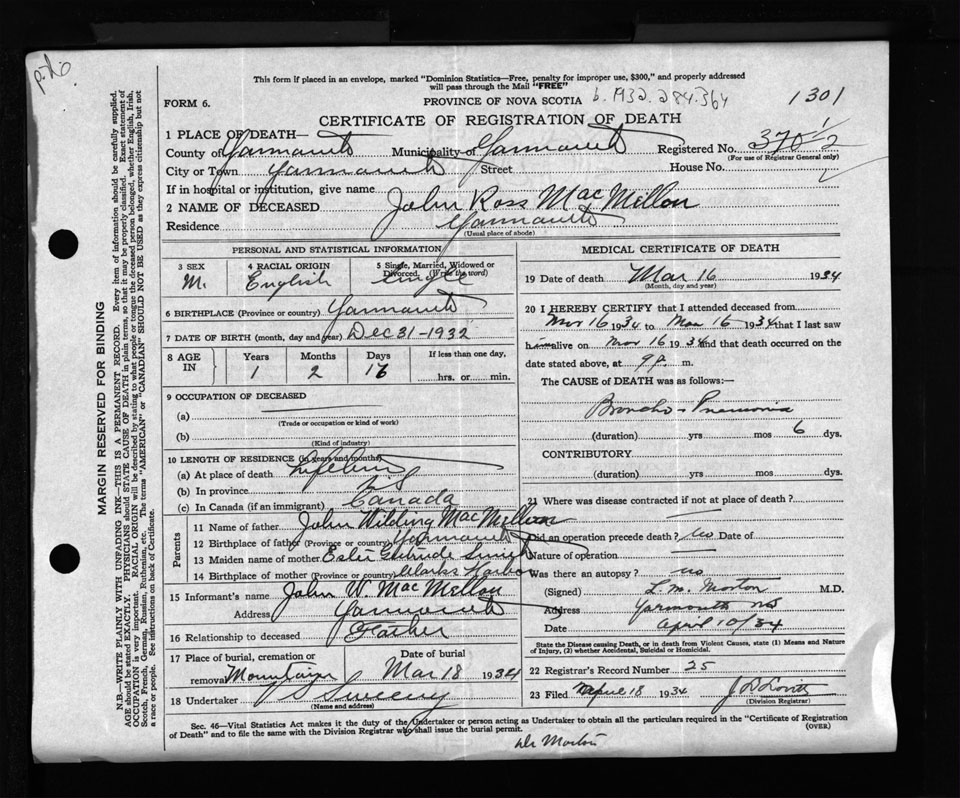 This form if placed in an envelope, marked "Dominion Statistics—Free, penalty for improper use, $300," and properly addressed
will pass through the Mail "FREE"
FORM 6.
PROVINCE OF NOVA SCOTIA b. 1932. 284.364
1301
CERTIFICATE OF REGISTRATION OF DEATH
1 PLACE OF DEATH—
County of Yarmouth Municipality of Yarmouth Registered No. 370 1/2
(For use of Registrar General only)
City or Town Yarmouth Street House No.
If in hospital or institution, give name
2 NAME OF DECEASED John Ross MacMellon
Residence Yarmouth
(Usual place of abode)
PERSONAL AND STATISTICAL INFORMATION
3 SEX M. 4 RACIAL ORIGIN English 5 Single, Married, Widowed or Divorced. (Write the word) Single
6 BIRTHPLACE (Province or country) Yarmouth
7 DATE OF BIRTH (month, day and year) Dec 31 - 1932
8 AGE IN Years 1 Months 2 Days 16 If less than one day, hrs. or min.
9 OCCUPATION OF DECEASED
(a)
(Trade or occupation or kind of work)
(b)
(Kind of industry)
10 LENGTH OF RESIDENCE (in years and months)
(a) At place of death Lifetime
(b) In province N S
(c) In Canada (if an immigrant) Canada
Parents
11 Name of father John Wilding MacMellon
12 Birthplace of father (Province or country) Yarmouth
13 Maiden name of mother Gertrude Smith
14 Birthplace of mother (Province or country) Clarks Harbor
15 Informant's name John W. MacMellon
Address Yarmouth
16 Relationship to deceased Father
17 Place of burial, cremation or removal Mountain Date of burial Mar 18 1934
18 Undertaker Sweeny
(Name and address)
MEDICAL CERTIFICATE OF DEATH
19 Date of death Mar 16 1934
(Month, day and year)
20 I HEREBY CERTIFY that I attended deceased from
Mar 16 1934 to Mar 16 1934 that I last saw
him alive on Mar 16 1934 and that death occurred on the
date stated above, at 9 P. m.
The CAUSE of DEATH was as follows:—
Broncho-Pneumonia
(duration) yrs mos 6 dys.
CONTRIBUTORY
(duration) yrs. mos. dys.
21 Where was disease contracted if not at place of death?
Did an operation precede death? No Date of
Nature of operation
Was there an autopsy? no
(Signed) L. M. Morton M.D.
Address Yarmouth NS
Date April 10/34
State the Disease causing Death, or in death from Violent Causes, state (1) Means and Nature
of Injury, (2) whether Accidental, Suicidal or Homicidal.
22 Registrar's Record Number 25
23 Filed April 18 1934
(Division Registrar)
Sec. 46—Vital Statistics Act makes it the duty of the Undertaker or person acting as Undertaker to obtain all the particulars required in the "Certificate of Registration
of Death" and to file the same with the Division Registrar who shall issue the burial permit.
(OVER)
Dr Morton
MARGIN RESERVED FOR BINDING
N.B.—WRITE PLAINLY WITH UNFADING INK—THIS IS A PERMANENT RECORD. Every item of information should be carefully supplied.
AGE should be stated EXACTLY. PHYSICIANS should STATE CAUSE OF DEATH in plain terms, so that it may be properly classified. Exact statement of
OCCUPATION is very important. RACIAL ORIGIN will be described by stating to what people or tongue the deceased person belonged, whether English, Irish,
Scotch, French, German, Russian, Ruthenian, etc. The terms "AMERICAN" or "CANADIAN" SHOULD NOT BE USED as they express citizenship but not
a race or people. See instructions on back of Certificate.